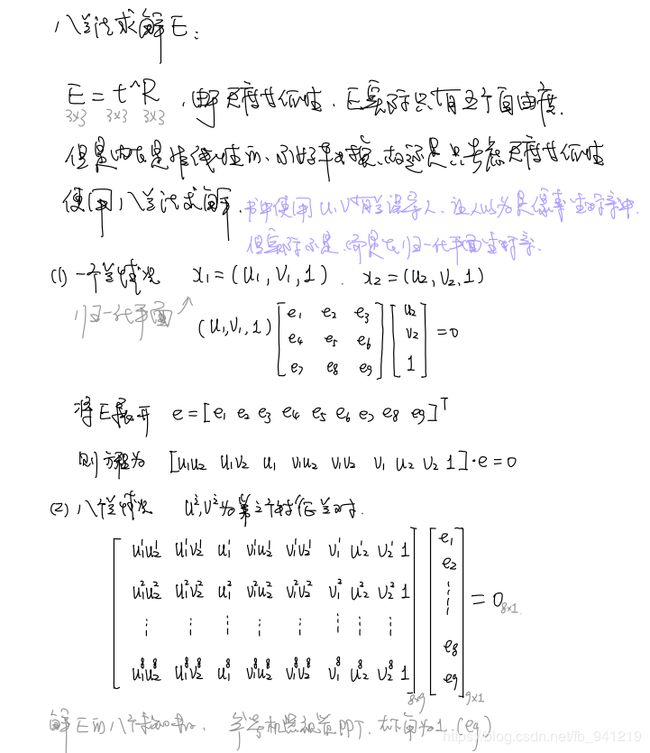 八点法求解E:
E = t^R , 由于尺度等价性, E实际只有五个自由度.
3×3 3×3 3×3
但是内在是非线性的, 不好求, 故还是只考虑尺度等价性
使用八点法求解.
书中使用u, v有点误导人, 让人以为是像素坐标系中.
但实际不是, 而是在归一化平面坐标系.
(1) 一个点情况 x₁=(u₁,v₁,1). x₂=(u₂,v₂,1)
归一化平面
(u₁,v₁,1) [e₁ e₂ e₃ [u₂
e₄ e₅ e₆ v₂ =0
e₇ e₈ e₉] 1]
将E展开 e=[e₁ e₂ e₃ e₄ e₅ e₆ e₇ e₈ e₉]ᵀ
则方程为 [u₁u₂ u₁v₂ u₁ v₁u₂ v₁v₂ v₁ u₂ v₂ 1]·e=0
(2) 八个点情况 u²,v²为第2个特征点对.
[u₁¹u₂¹ u₁¹v₂¹ u₁¹ v₁¹u₂¹ v₁¹v₂¹ v₁¹ u₂¹ v₂¹ 1 [e₁
e₂
u₁²u₂² u₁²v₂² u₁² v₁²u₂² v₁²v₂² v₁² u₂² v₂² 1 ⋮ = 0 8×1
⋮ ⋮ ⋮ ⋮ ⋮ ⋮ ⋮ ⋮
e₈
u₁⁸u₂⁸ u₁⁸v₂⁸ u₁⁸ v₁⁸u₂⁸ v₁⁸v₂⁸ v₁⁸ u₂⁸ v₂⁸ 1] e₉]
8×9 9×1
解E的八个 PPT, 右下角为1. (e₉)
https://blog.csdn.net/fb_941219